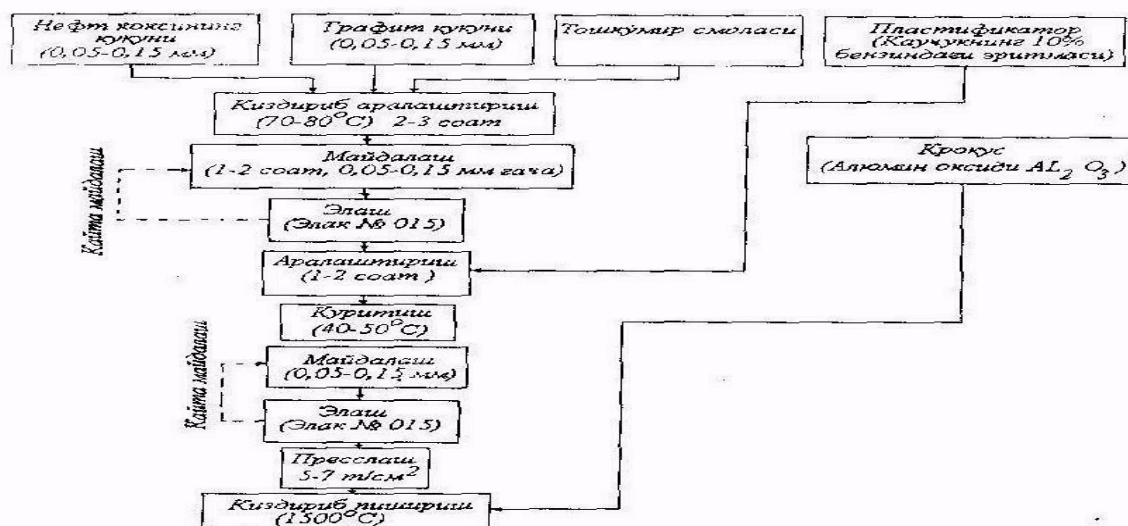 Нефт коксининг
кукуни
(0,05-0,15 мм)
Графит кукуни
(0,05-0,15 мм)
Тошкумир смоласи
Пластификатор
(Каучукнинг 10%
бензиндаги эритмаси)
Киздириб аралаштириш
(70-80°C) 2-3 соат
Майдалаш
(1-2 соат, 0,05-0,15 мм гача)
Крокус
(Алюмин оксиди AL₂ O₃)
Кайта майдалаш
Элаш
(Элак № 015)
Аралаштириш
(1-2 соат)
Куритиш
(40-50°C)
Майдалаш
(0,05-0,15 мм)
Кайта майдалаш
Элаш
(Элак № 015)
Пресслаш
5-7 т/см²
Киздириб пишириш
(1500°C)